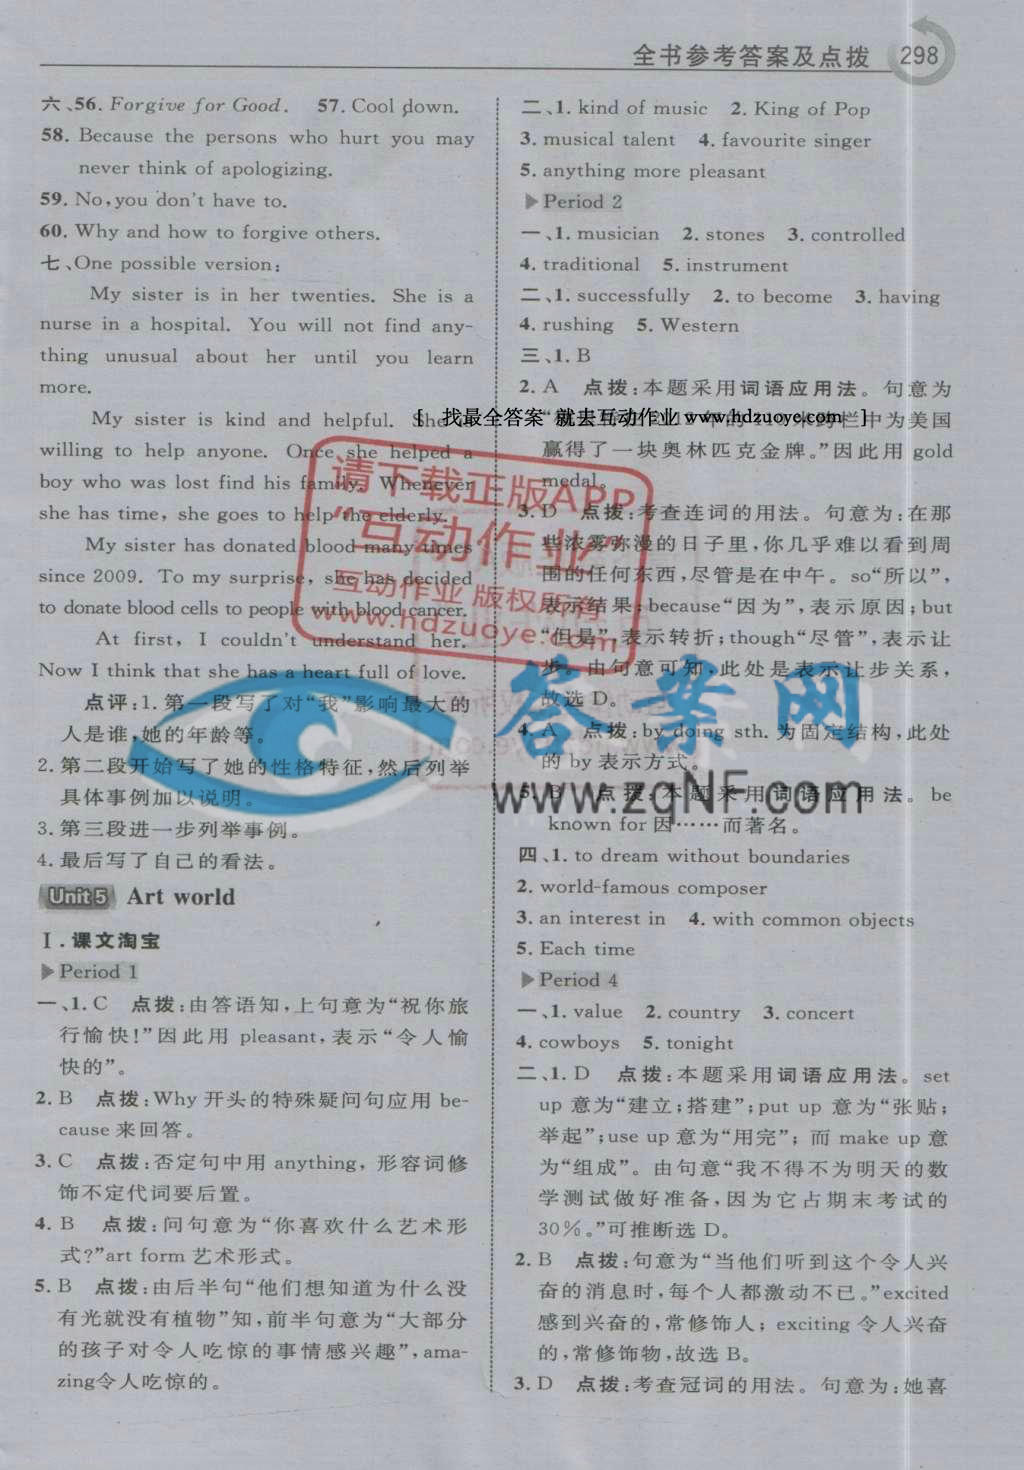 全书参考答案及点拨 298
六、56. Forgive for Good. 57. Cool down.
58. Because the persons who hurt you may
never think of apologizing.
59. No, you don't have to.
60. Why and how to forgive others.
七、One possible version:
My sister is in her twenties. She is a
nurse in a hospital. You will not find any-
thing unusual about her until you learn
more.
My sister is kind and helpful. She is
willing to help anyone. Once she helped a
boy who was lost find his family. Whenever
she has time, she goes to help the elderly.
My sister has donated blood many times
since 2009. To my surprise, she has decided
to donate blood cells to people with blood cancer.
At first, I couldn't understand her.
Now I think that she has a heart full of love.
点评:1. 第一段写了对“我”影响最大的
人是谁,她的年龄等。
2. 第二段开始写了她的性格特征,然后列举
具体事例加以说明。
3. 第三段进一步列举事例。
4. 最后写了自己的看法。
Unit 5 Art world
Ⅰ.课文淘宝
Period 1
一、1. C 点拨:由答语知,上句意为“祝你旅
行愉快!”因此用 pleasant,表示“令人愉
快的”。
2. B 点拨:Why 开头的特殊疑问句应用 be-
cause 来回答。
3. C 点拨:否定句中用 anything, 形容词修
饰不定代词要后置。
4. B 点拨:问句意为“你喜欢什么艺术形
式?”art form 艺术形式。
5. B 点拨:由后半句“他们想知道为什么没
有光就没有植物”知,前半句意为“大部分
的孩子对令人吃惊的事情感兴趣”,ama-
zing令人吃惊的。
二、1. kind of music 2. King of Pop
3. musical talent 4. favourite singer
5. anything more pleasant
Period 2
一、1. musician 2. stones 3. controlled
4. traditional 5. instrument
二、1. successfully 2. to become 3. having
4. rushing 5. Western
三、1. B
2. A 点拨:本题采用词语应用法。句意为
[ 找最全答案 就去互动作业 www.hdzuoye.com ]
年的110米跨栏中为美国
赢得了一块奥林匹克金牌。”因此用 gold
medal。
3. D 点拨:考查连词的用法。句意为:在那
些浓雾弥漫的日子里,你几乎难以看到周
围的任何东西,尽管是在中午。so“所以”,
表示结果;because“因为”,表示原因;but
“但是”,表示转折;though“尽管”,表示让
步。由句意可知,此处是表示让步关系,
故选 D。
4. A 点拨:by doing sth. 为固定结构,此处
的 by 表示方式。
5. B 点拨:本题采用词语应用法。be
known for 因……而著名。
四、1. to dream without boundaries
2. world-famous composer
3. an interest in 4. with common objects
5. Each time
Period 4
一、1. value 2. country 3. concert
4. cowboys 5. tonight
二、1. D 点拨:本题采用词语应用法。set
up 意为“建立;搭建”;put up 意为“张贴;
举起”;use up 意为“用完”; 而 make up 意
为“组成”。由句意“我不得不为明天的数
学测试做好准备,因为它占期末考试的
30%。”可推断选 D。
2. B 点拨:句意为“当他们听到这个令人兴
奋的消息时,每个人都激动不已。”excited
感到兴奋的,常修饰人; exciting 令人兴奋
的,常修饰物,故选 B。
3. D 点拨:考查冠词的用法。句意为:她喜
请下载正版APP
“互动作业”
互动作业 版权所有
www.hdzuoye.com
答案网
www.zqNF.com